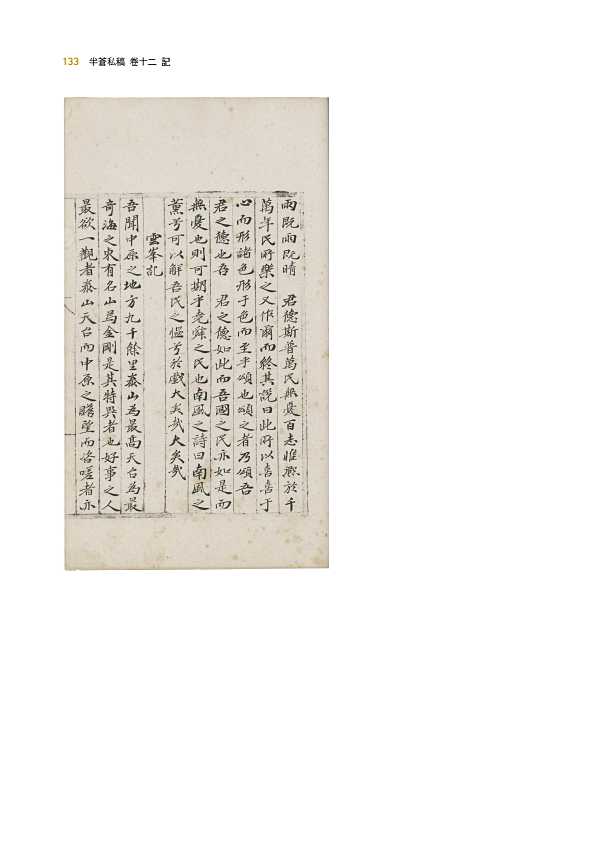 133 半蒼私稿 卷十二 記
雨既雨既晴 君德斯普萬民無憂百志惟熙於千
萬年民所樂之又作爾而終其說曰此所以喜喜于
心而形諸色形于色而至乎頌也頌之者乃頌吾
君之德也吾 君之德如此而吾國之民亦如是而
無憂也則可期乎堯舜之民也南風之詩曰南風之
薰兮可以解吾民之慍兮於戲大矣哉大矣哉
雲峯記
吾聞中原之地方九千餘里泰山為最高天台為最
奇海之東有名山為金剛是其特異者也好事之人
最欲一觀者泰山天台而中原之瞻望而咨嗟者亦